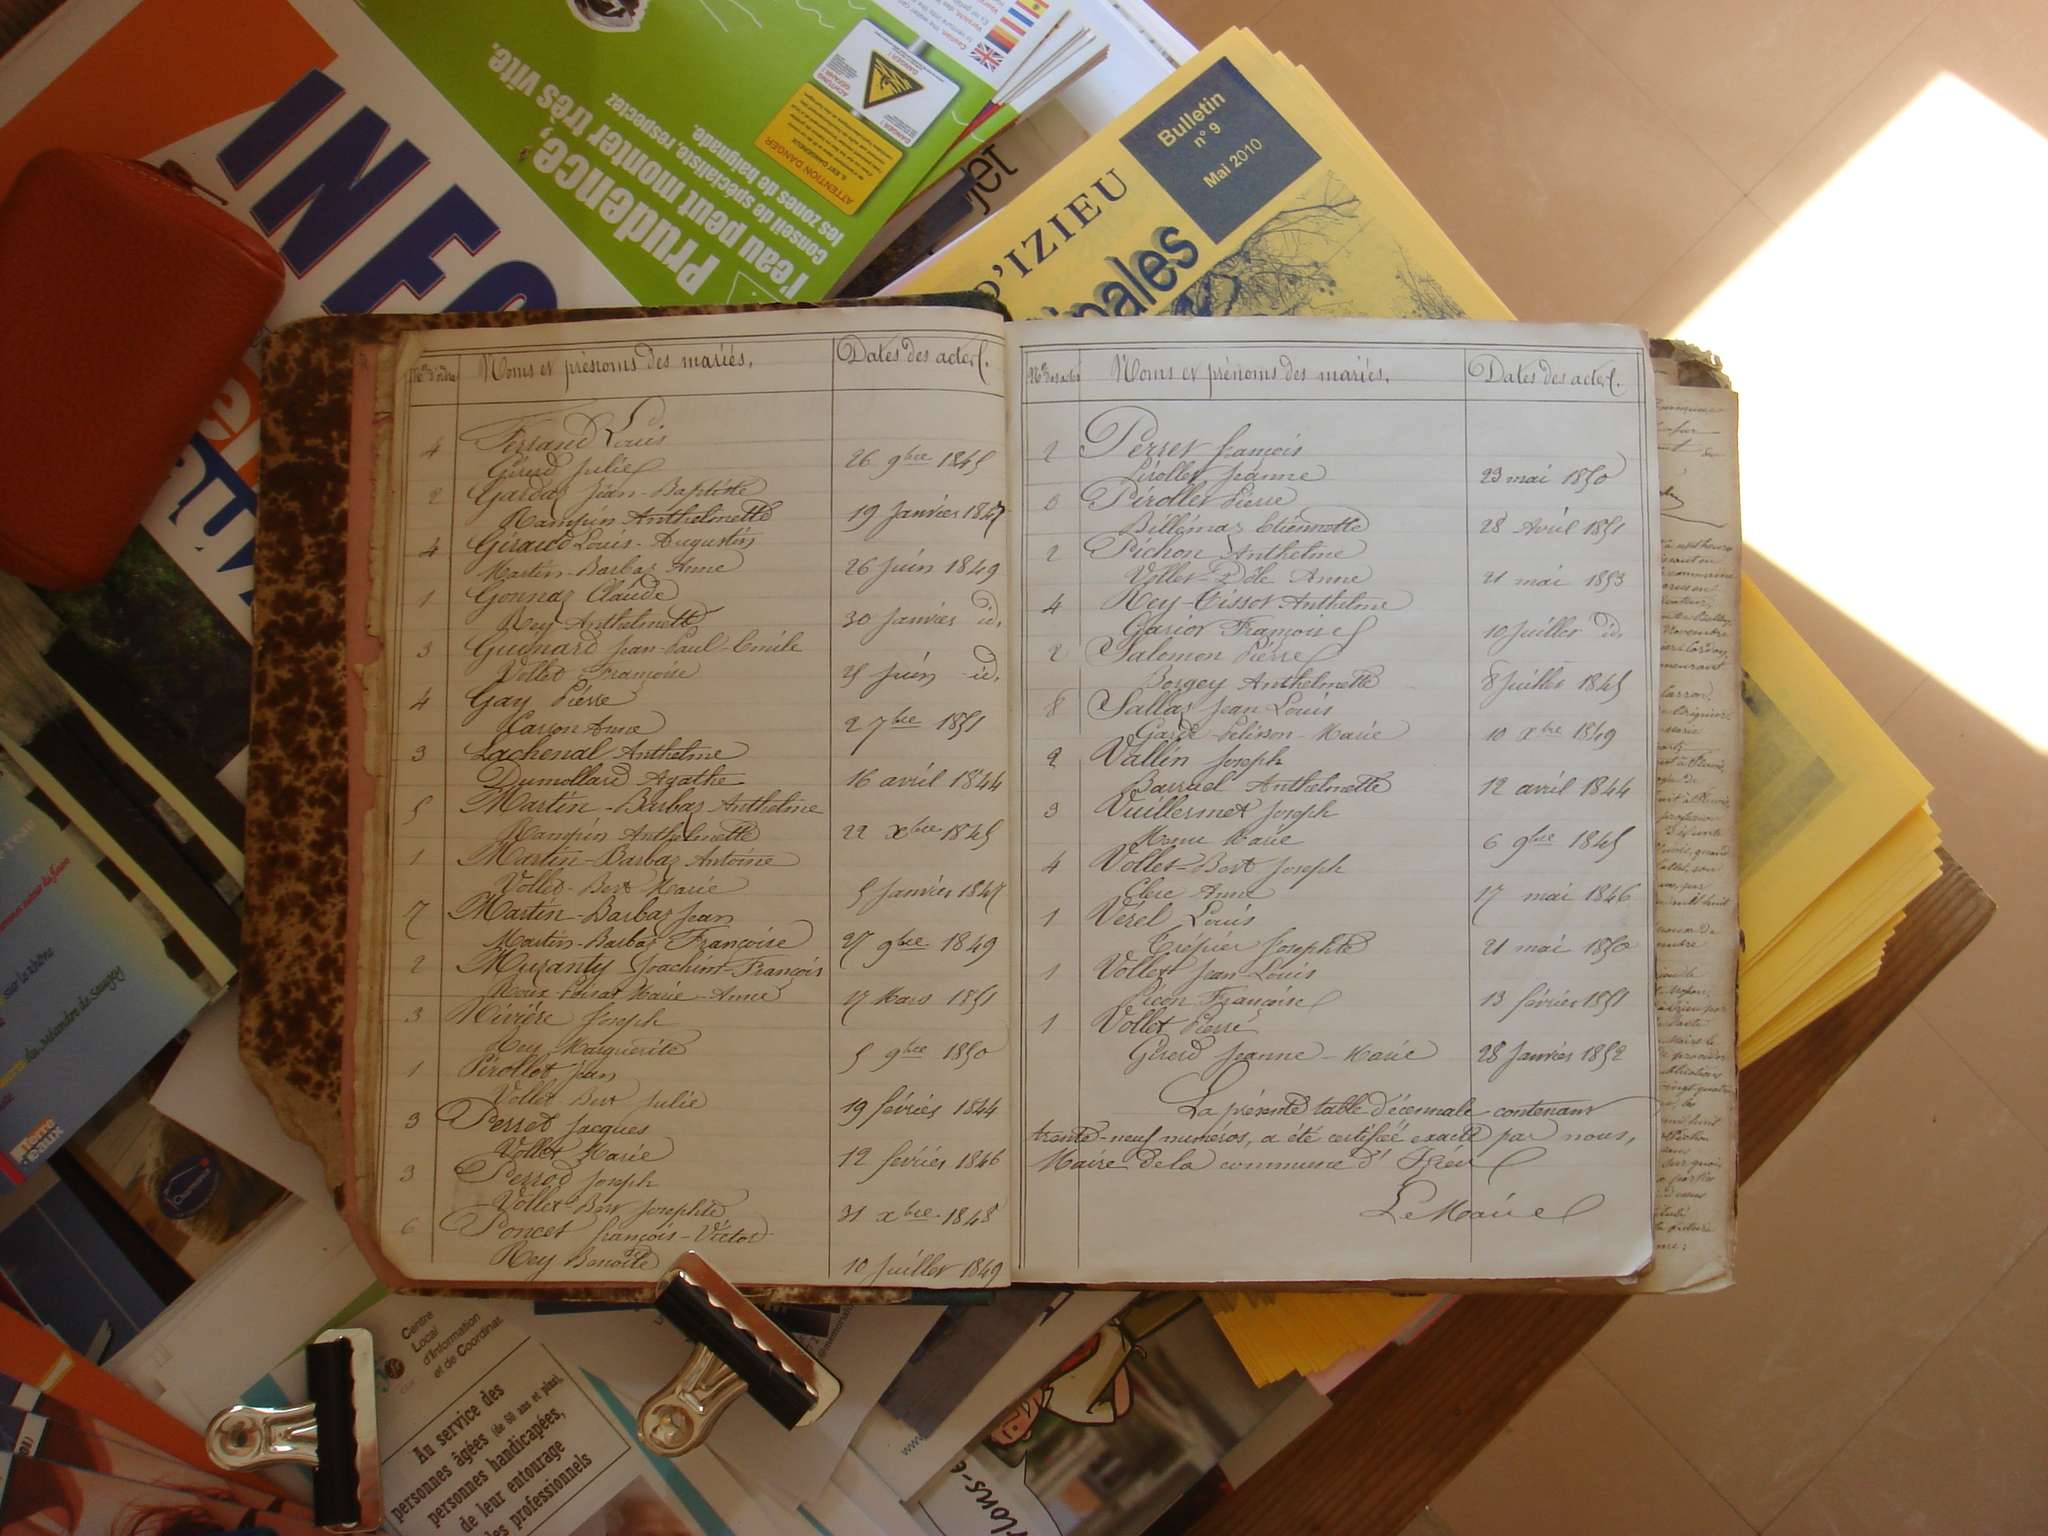 INFO
Prudence,
l'eau peut monter très vite.
Conseil de spécialiste, respectez
les zones de baignade.
ATTENTION DANGER
Bulletin
n° 9
Mai 2010
D'IZIEU
ipales
Noms et prénoms des mariés. Dates des actes.
4 Ferrand Louis
Girerd Julie 26 9bre 1845
2 Gardaz Jean-Baptiste
Rampin Anthelmette 19 Janvier 1847
4 Giraud Louis-Augustin
Martin-Barbaz Anne 26 Juin 1849
1 Gonnaz Claude
Rey Anthelmette 30 Janvier id.
3 Guinard Jean-Paul-Emile
Vollet Françoise 25 Juin id.
4 Gay Pierre
Carron Anne 2 7bre 1851
3 Lachenal Anthelme
Dumollard Agathe 16 avril 1844
5 Martin-Barbaz Anthelme
Rampin Anthelmette 22 Xbre 1845
1 Martin-Barbaz Antoine
Vollet-Bert Marie 5 Janvier 1847
7 Martin-Barbaz Jean
Martin-Barbaz Françoise 27 9bre 1849
2 Muranty Joachim-François
Roux Marie-Anne 17 Mars 1851
3 Rivière Joseph
Rey Marguerite 5 9bre 1850
1 Pirollet Jean
Vollet-Bert Julie 19 février 1844
3 Perret Jacques
Vollet Marie 12 février 1846
3 Perrod Joseph
Vollet-Bert Josephte 31 Xbre 1848
6 Poncet françois-Victor
Rey Benoîte 10 Juillet 1849
Nos des actes Noms et prénoms des mariés. Dates des actes.
2 Perret françois
Pirollet Jeanne 23 mai 1850
3 Pirollet Pierre
Billémaz Etiennette 28 Avril 1851
2 Pichon Anthelme
Vollet-Dôle Anne 21 mai 1853
4 Rey-Tissot Anthelme
Garior Françoise 10 Juillet id.
2 Salomon Pierre
Borgey Anthelmette 8 Juillet 1845
8 Sallaz Jean Louis
Garde-Pelisson-Marie 10 Xbre 1849
2 Vallin Joseph
Barruel Anthelmette 12 avril 1844
3 Vuillermet Joseph
Marie 6 9bre 1845
4 Vollet-Bert Joseph
Clerc Anne 17 mai 1846
1 Vérel Louis
Trépier Josephte 21 mai 1850
1 Vollet Jean-Louis
Picon Françoise 13 février 1851
1 Vollet Pierre
Girerd Jeanne-Marie 28 Janvier 1852
La présente table décennale contenant
trente-neuf numéros, a été certifiée exacte par nous,
Maire de la commune d'Izieu
Le Maire
Terre
eaux
Centre
Local
d'Information
et de Coordinat.
Au service des
personnes âgées (de 60 ans et plus),
personnes handicapées,
de leur entourage
les professionnels
rlons-e